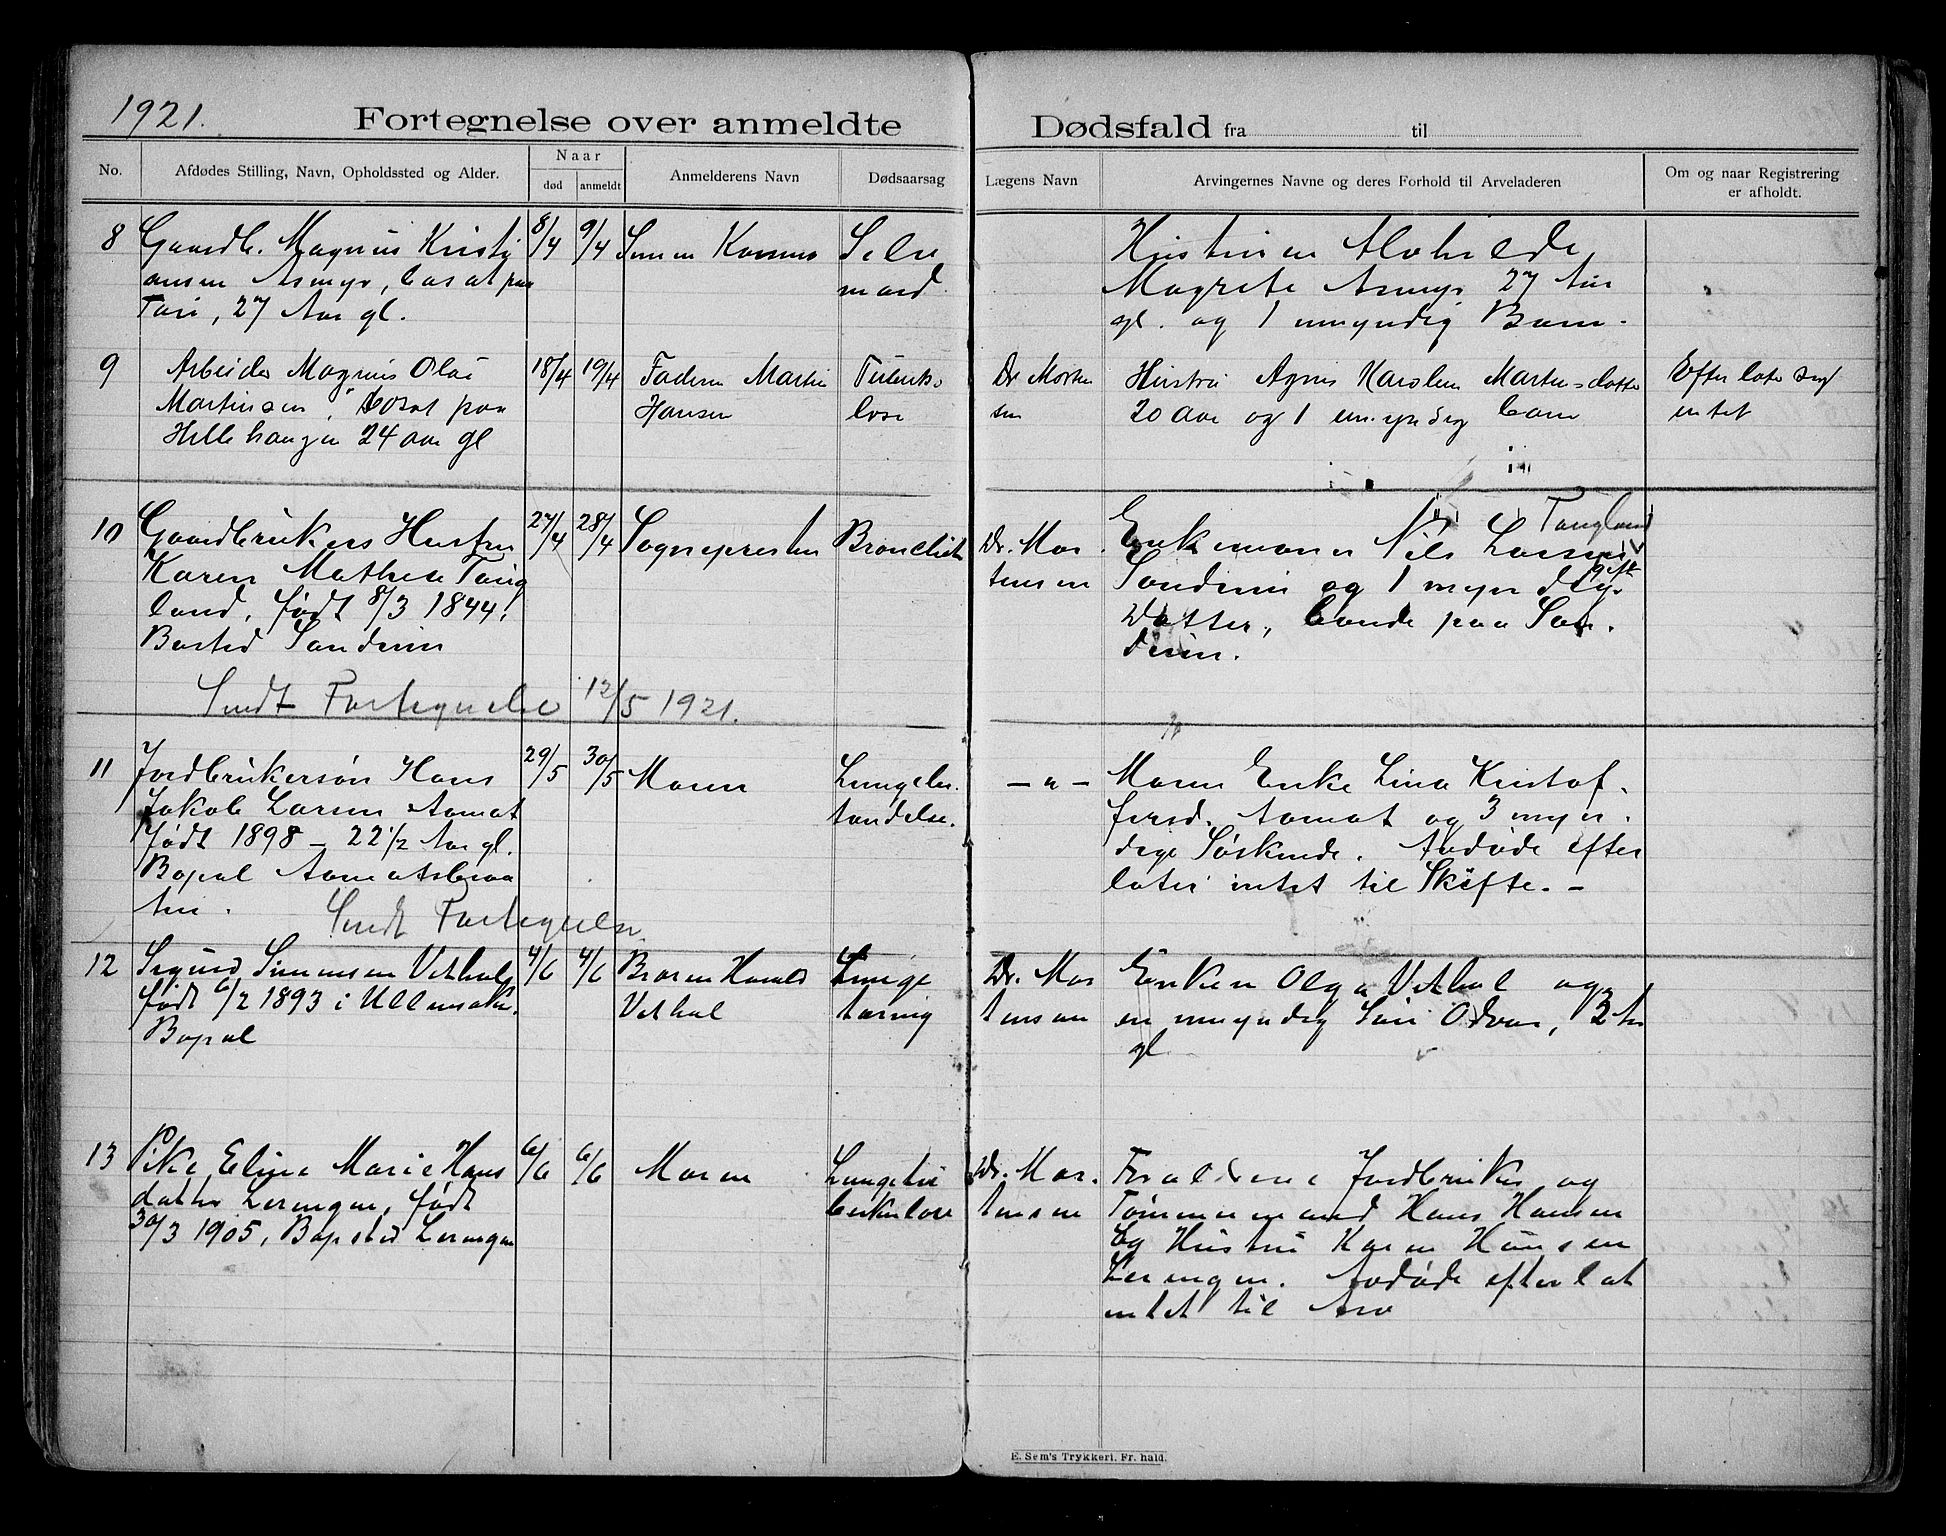 1921.
Fortegnelse over anmeldte Dødsfald fra til
No.
Afdødes Stilling, Navn, Opholdssted og Alder.
Naar
død
anmeldt
Anmelderens Navn
Dødsaarsag
Lægens Navn
Arvingernes Navne og deres Forhold til Arveladeren
Om og naar Registrering
er afholdt.
8
Gaardb. Magnus Kristj
ansen Asmyr, bosat paa
27 Aar gl.
8/4
9/4
Selv
mord
Hustruen Alvhilde
Magrete Asmyr 27 Aar
gl. og 1 umyndig Barn.
9
Arbeider Magnus Olai
Martinsen, bosat paa
Hellehaugen 24 aar gl
18/4
19/4
Faderen Martin
Hansen
Tuberku
lose
Dr Morten
sen
Hustru Agnes Karoline Martinsdatter
20 aar og 1 umyndig barn
Efterlater sig
intet
10
Gaardbrukers Hustru
Karen Mathea Tang
land, født 8/3 1844.
Bosted Sandrum
27/4
28/4
Sognepresten
Bronchit
Dr. Mor
tensen
Tangland
Enkemann Nils Larsen
Sandrum og 1 myndig gift
Datter, boende paa San
drum.
Sendt Fortegnelse 12/5 1921.
11
Jordbrukersøn Hans
Jakob Larsen Aamot
født 1898 - 22 1/2 Aar gl.
Bopæl Aamotsbraa
ten.
29/5
30/5
Moren
Lungebe
tændelse.
- " -
Moren Enke Lina Kristof
fersd. Aamot og 3 myn
dige Søskende. Avdøde efter
later intet til Skifte. -
Sendt Fortegnelse
12
Sigurd Simensen Vethal
født 6/2 1893 i Ullensaker.
Bopæl
4/6
4/6
Broren Harald
Vethal
Lunge
tæring
Dr. Mor
tensen
Enken Olga Vethal og
en umyndig Søn Odvar, 2 Aar
gl
13
Pike Eline Marie Hans
datter Lerengen, født
30/3 1905, Bopsted Lerengen
6/6
6/6
Moren
Lungetu
berkulose
Dr. Mor.
tensen
Forældrene Jordbruker og
Tømmermand Hans Hansen
og Hustru Karen Hansen
Lerengen. Avdøde efterlot
intet til Arv
E. Sem's Trykkeri. Fr. hald.